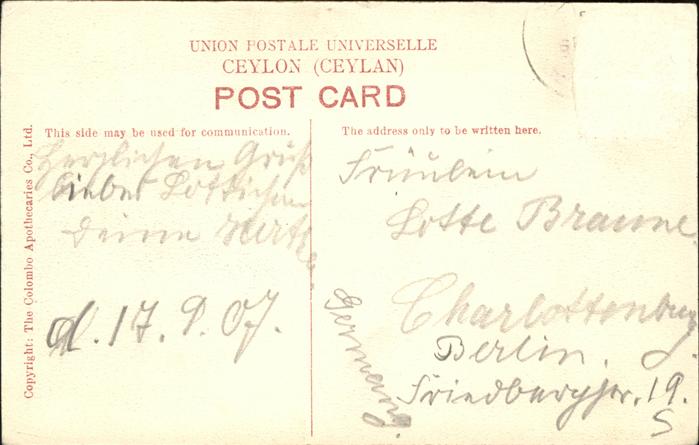 UNION POSTALE UNIVERSELLE
CEYLON (CEYLAN)
POST CARD
This side may be used for communication.
The address only to be written here.
Copyright: The Colombo Apothecaries Co., Ltd.
Herzlichen Gruß
liebes Lottichen
Deine
d. 17. 9. 07.
Fräulein
Lotte Braune
Charlottenburg
Berlin.
Friedbergstr. 19.
Germany.